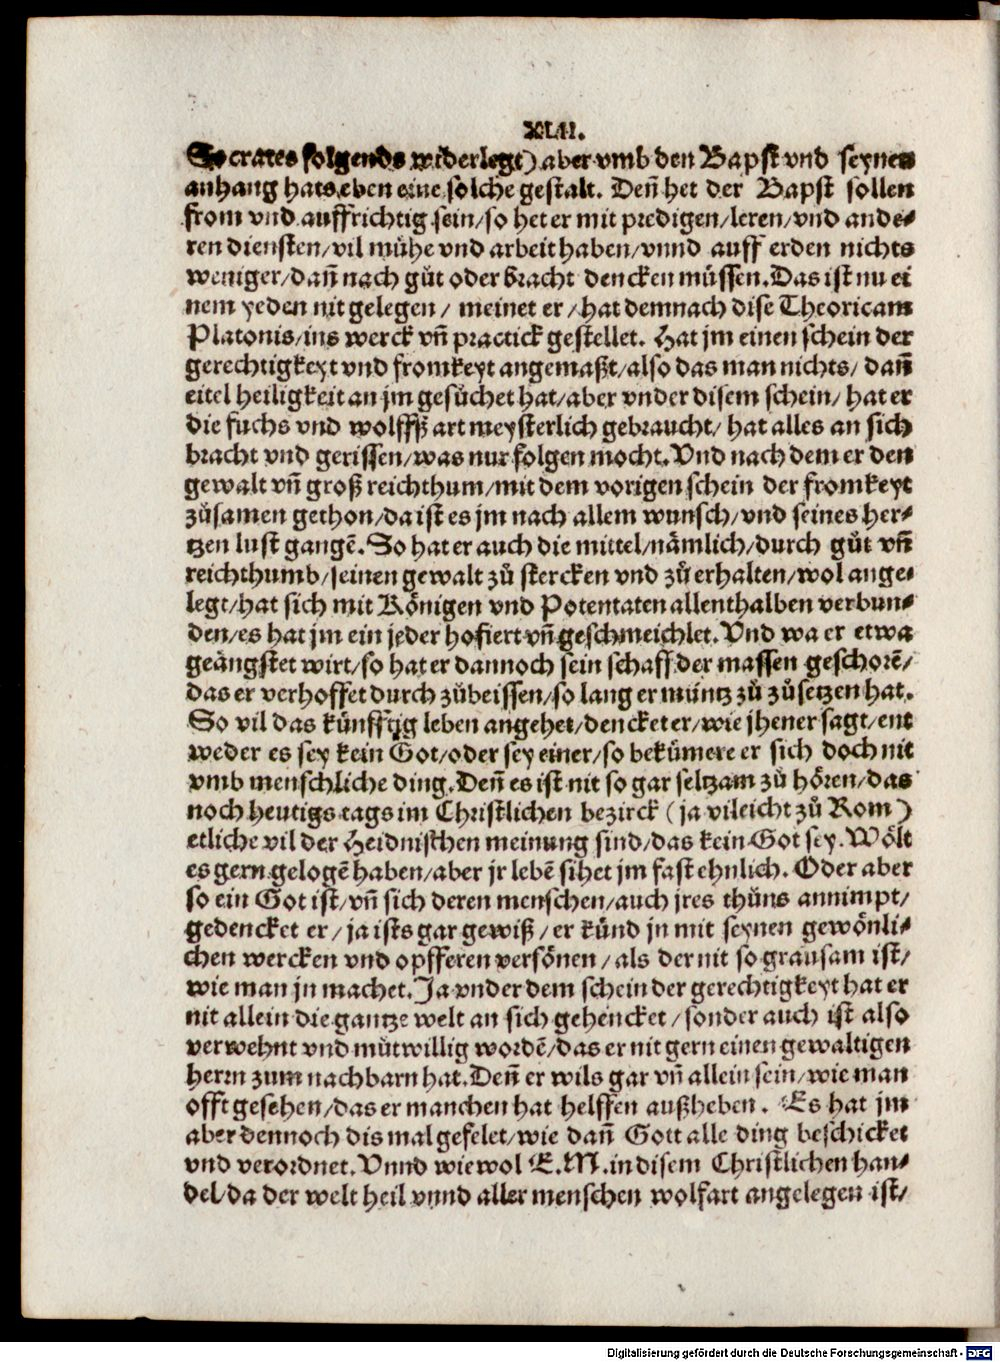 XLII.
Socrates folgends widerlegt) aber vmb den Bapst vnd seynen
anhang hats eben eine solche gestalt. Deñ het der Bapst sollen
from vnd auffrichtig sein/so het er mit predigen/leren/vnd ande⸗
ren diensten/vil mühe vnd arbeit haben/vnnd auff erden nichts
weniger/dañ nach gůt oder bracht dencken müssen. Das ist nu ei
nem yeden nit gelegen/ meinet er/hat demnach dise Theoricam
Platonis/ins werck vñ practick gestellet. Hat jm einen schein der
gerechtigkeyt vnd fromkeyt angemaßt/also das man nichts/ dañ
eitel heiligkeit an jm gesůchet hat/aber vnder disem schein/ hat er
die fuchs vnd wolffß art meysterlich gebraucht/ hat alles an sich
bracht vnd gerissen/was nur folgen mocht. Vnd nach dem er den
gewalt vñ groß reichthum/mit dem vorigen schein der fromkeyt
zůsamen gethon/da ist es jm nach allem wunsch/vnd seines her⸗
tzen lust gangē. So hat er auch die mittel/nämlich/durch gůt vñ
reichthumb/seinen gewalt zů stercken vnd zů erhalten/wol ange⸗
legt/hat sich mit Königen vnd Potentaten allenthalben verbun⸗
den/es hat jm ein jeder hofiert vñ geschmeichlet. Vnd wa er etwa
geängstet wirt/so hat er dannoch sein schaff der massen geschorē/
das er verhoffet durch zůbeissen/so lang er müntz zů zůsetzen hat.
So vil das künfftig leben angehet/dencket er/wie jhener sagt/ent
weder es sey kein Got/oder sey einer/so bekümere er sich doch nit
vmb menschliche ding. Deñ es ist nit so gar seltzam zů hören/das
noch heutigs tags im Christlichen bezirck (ja vileicht zů Rom)
etliche vil der Heidnischen meinung sind/das kein Got sey. Wölt
es gern gelogē haben/aber jr lebē sihet jm fast ehnlich. Oder aber
so ein Got ist/vñ sich deren menschen/auch jres thůns annimpt/
gedencket er/ ja ists gar gewiß/er künd jn mit seynen gewönli⸗
chen wercken vnd opfferen versönen/als der nit so grausam ist/
wie man jn machet. Ja vnder dem schein der gerechtigkeyt hat er
nit allein die gantze welt an sich gehencket/sonder auch ist also
verwehnt vnd můtwillig wordē/das er nit gern einen gewaltigen
herrn zum nachbarn hat. Deñ er wils gar vñ allein sein/wie man
offt gesehen/das er manchen hat helffen außheben. Es hat jm
aber dennoch dis mal gefelet/wie dañ Gott alle ding beschicket
vnd verordnet. Vnnd wiewol E.M. in disem Christlichen han⸗
del/da der welt heil vnnd aller menschen wolfart angelegen ist/
Digitalisierung gefördert durch die Deutsche Forschungsgemeinschaft - DFG